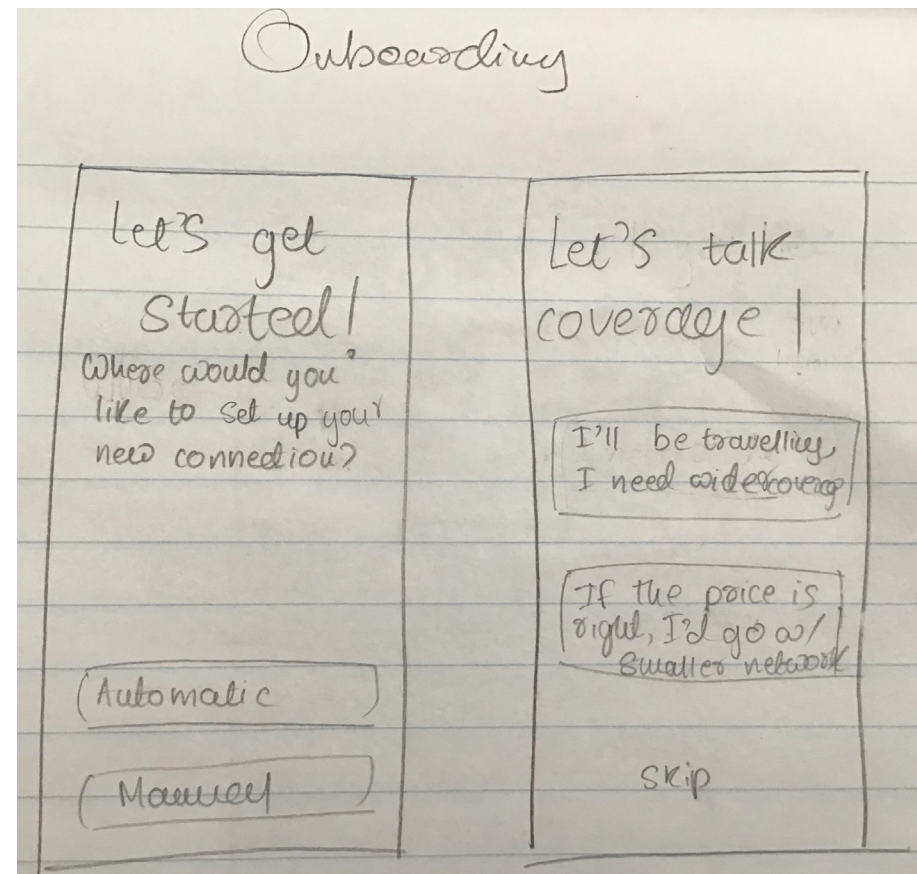 Onboarding
Let's get
Started!
Where would you
like to set up your
new connection?
Automatic
Manual
Let's talk
coverage!
I'll be travelling,
I need wider coverage
If the price is
right, I'd go w/
smaller network
skip